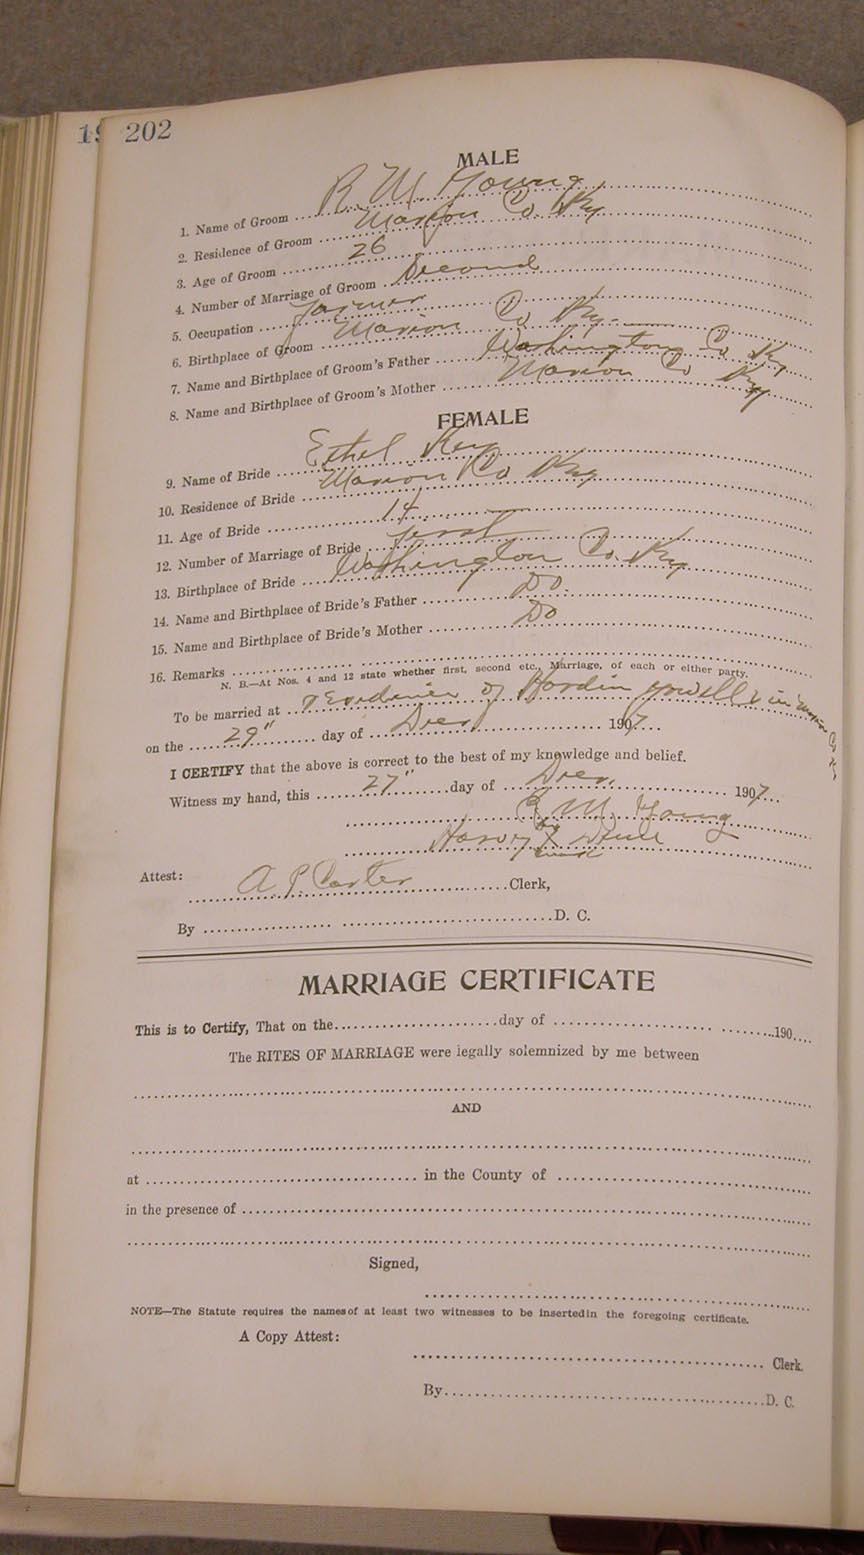 19 202
MALE
1. Name of Groom R. M. Young
2. Residence of Groom Marion Co. Ky
3. Age of Groom 26
4. Number of Marriage of Groom Second
5. Occupation Farmer
6. Birthplace of Groom Marion Co Ky.
7. Name and Birthplace of Groom's Father Washington Co Ky
8. Name and Birthplace of Groom's Mother Marion Co Ky
FEMALE
9. Name of Bride Ethel Key
10. Residence of Bride Marion Co Ky
11. Age of Bride 14
12. Number of Marriage of Bride first
13. Birthplace of Bride Washington Co. Ky
14. Name and Birthplace of Bride's Father Do.
15. Name and Birthplace of Bride's Mother Do
16. Remarks
N. B.—At Nos. 4 and 12 state whether first, second etc., Marriage, of each or either party.
To be married at residence of Hardin in Marion Co Ky
on the 29" day of Dec 1907
I CERTIFY that the above is correct to the best of my knowledge and belief.
Witness my hand, this 27" day of Dec. 1907
R. M. Young
Attest:
A. P. Carter Clerk,
By D. C.
MARRIAGE CERTIFICATE
This is to Certify, That on the day of 190
The RITES OF MARRIAGE were legally solemnized by me between
AND
at in the County of
in the presence of
Signed,
NOTE—The Statute requires the names of at least two witnesses to be inserted in the foregoing certificate.
A Copy Attest:
Clerk.
By D. C.